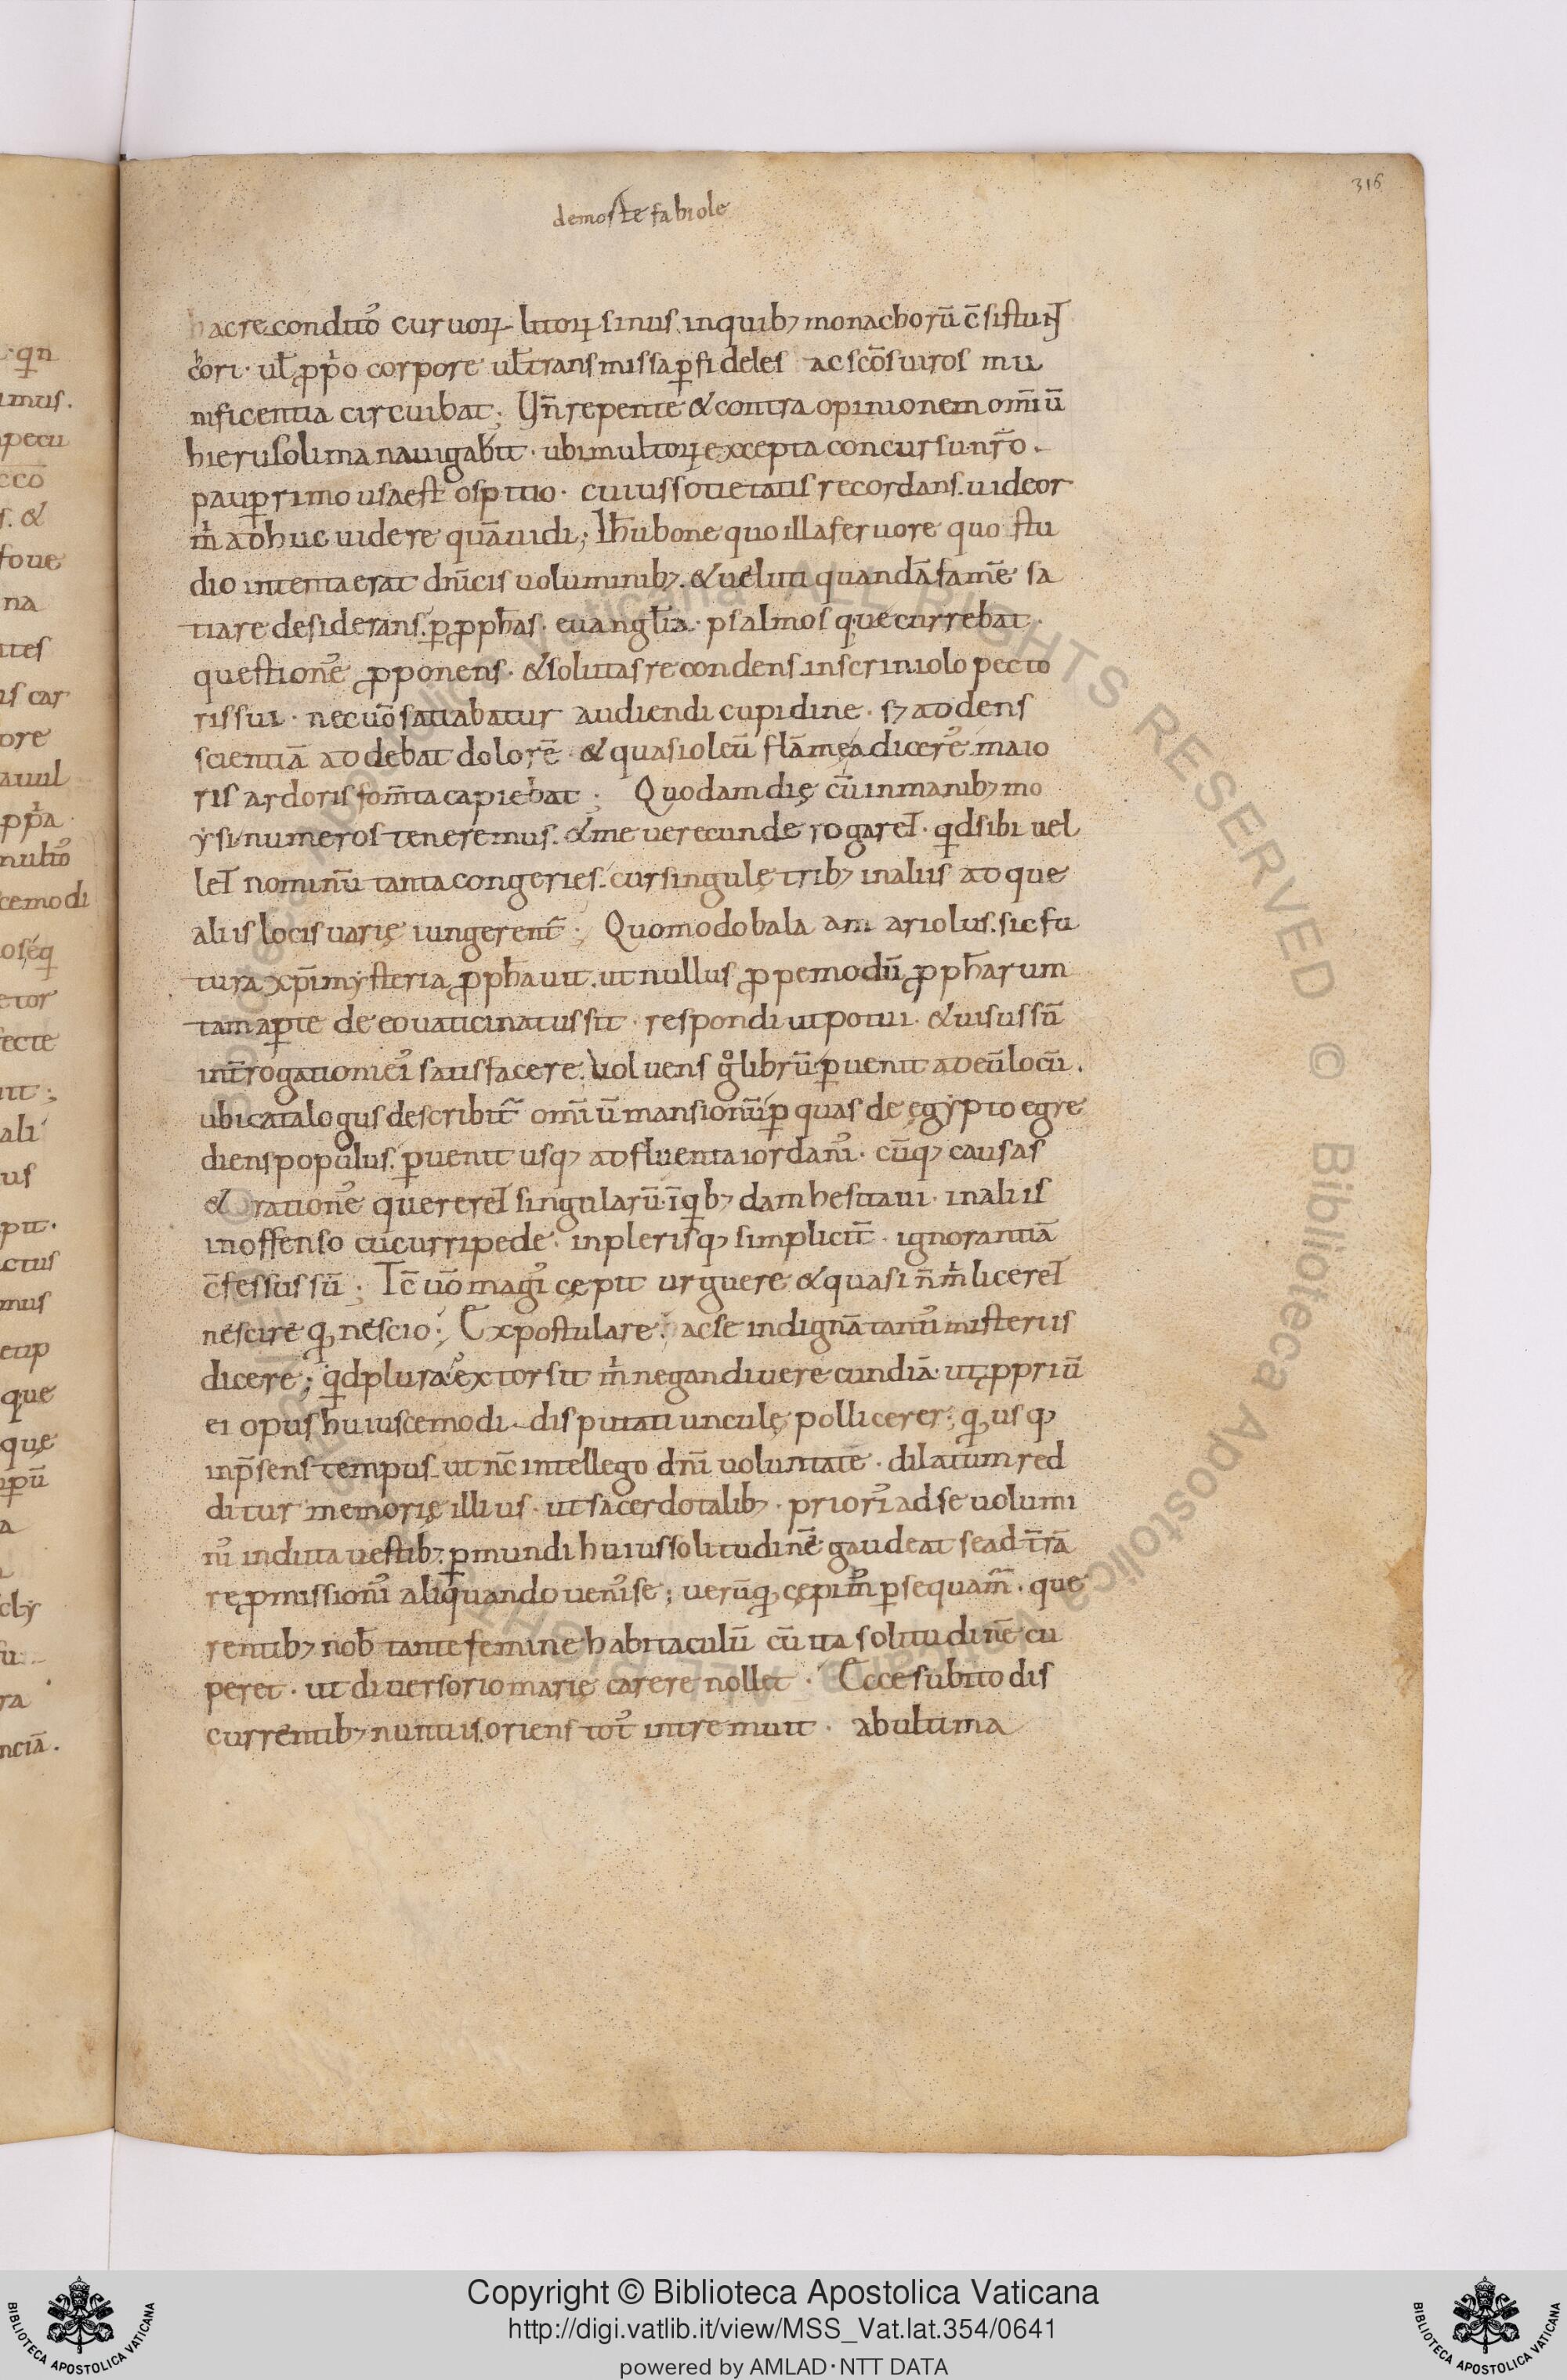 316
de morte fabiole
hac reconditos curuoꝝ litoꝝ sinus. in quibꝫ monachorū c̄sistunt
chori· ul̄ ꝓpo corpore ul̄ transmissa ꝑ fideles ac sc̄os uiros mu
nificentia circuibat; Vn̄ repente & contra opinionem om̄iū
hierusolima nauigauit· ubi multoꝝ excepta concursu· nr̄o
pauꝑrimo usa est ospitio· cuius sotietatis recordans. uideor
m̍ adhuc uidere quā uidi; Ih̄u bone quo illa feruore quo stu
dio intenta erat dn̄icis uoluminibꝫ. & ueluti quandā famē sa
tiare desiderans. ꝑ ꝓph̄as· euangl̄ia· psalmos que currebat·
questiones ꝓponens· & solutas recondens in scriniolo pecto
ris sui· nec uō satiabatur audiendi cupidine· sꝫ addens
scientiā addebat dolorē· & quasi oleū flāmę adiceres. maio
ris ardoris fom̄ta capiebat; Quodam die cū in manibꝫ mo
ysi numeros teneremus. & me uerecunde rogaret· qd sibi uel
let nominū tanta congeries. cur singulę tribꝫ in aliis adque
aliis locis uarię iungerent̄; Quomodo balaam ariolus. sic fu
tura xp̄i mysteria ꝓph̄auit. ut nullus ꝓpemodū ꝓph̄arum
tam aꝑte de eo uaticinatus sit· respondi ut potui· & uisus sū
int̄rogationi ei satisfacere. Voluens g̊ librū ꝑuenit ad eū locū.
ubi catalogus describit̄ om̄iū mansionū ꝑ quas de ęgypto egre
diens populus. ꝑuenit usqꝫ ad fluenta iordanis· cūqꝫ causas
& rationes quereret singularū· ī qbꝫdam hesitaui· in aliis
inoffenso cucurri pede· in plerisqꝫ simplicit̄· ignorantiā
c̄fessus sū; Tc̄ uō magis cępit urguere & quasi n̄ m̍ liceret
nescire qꝫ nescio; Expostulare. ac se indignā tantis misteriis
dicere; qd plura? extorsit m̍ negandi uerecundiā· ut ꝓpriū
ei opus huiuscemodi disputatiunculę pollicerer; qꝫ usqꝫ
in p̄sens tempus ut nc̄ intellego dn̄i uoluntate· dilatum red
ditur memorię illius· ut sacerdotalibꝫ· prioris ad se uolumi
nis induta uestibꝫ. ꝑ mundi huius solitudinē gaudeat se ad t̄rā
repmissionis aliquando uenisse; uerū qꝫ cępim̄ ꝑsequam̄· que
rentibꝫ nob̄ tante femine habitaculū cū ita solitudinē cu
peret· ut diuersorio marię carere nollet· Ecce subito dis
currentibꝫ nuntiis. oriens tot̉ intremuit· ab ultima
Copyright © Biblioteca Apostolica Vaticana
http://digi.vatlib.it/view/MSS_Vat.lat.354/0641
powered by AMLAD·NTT DATA